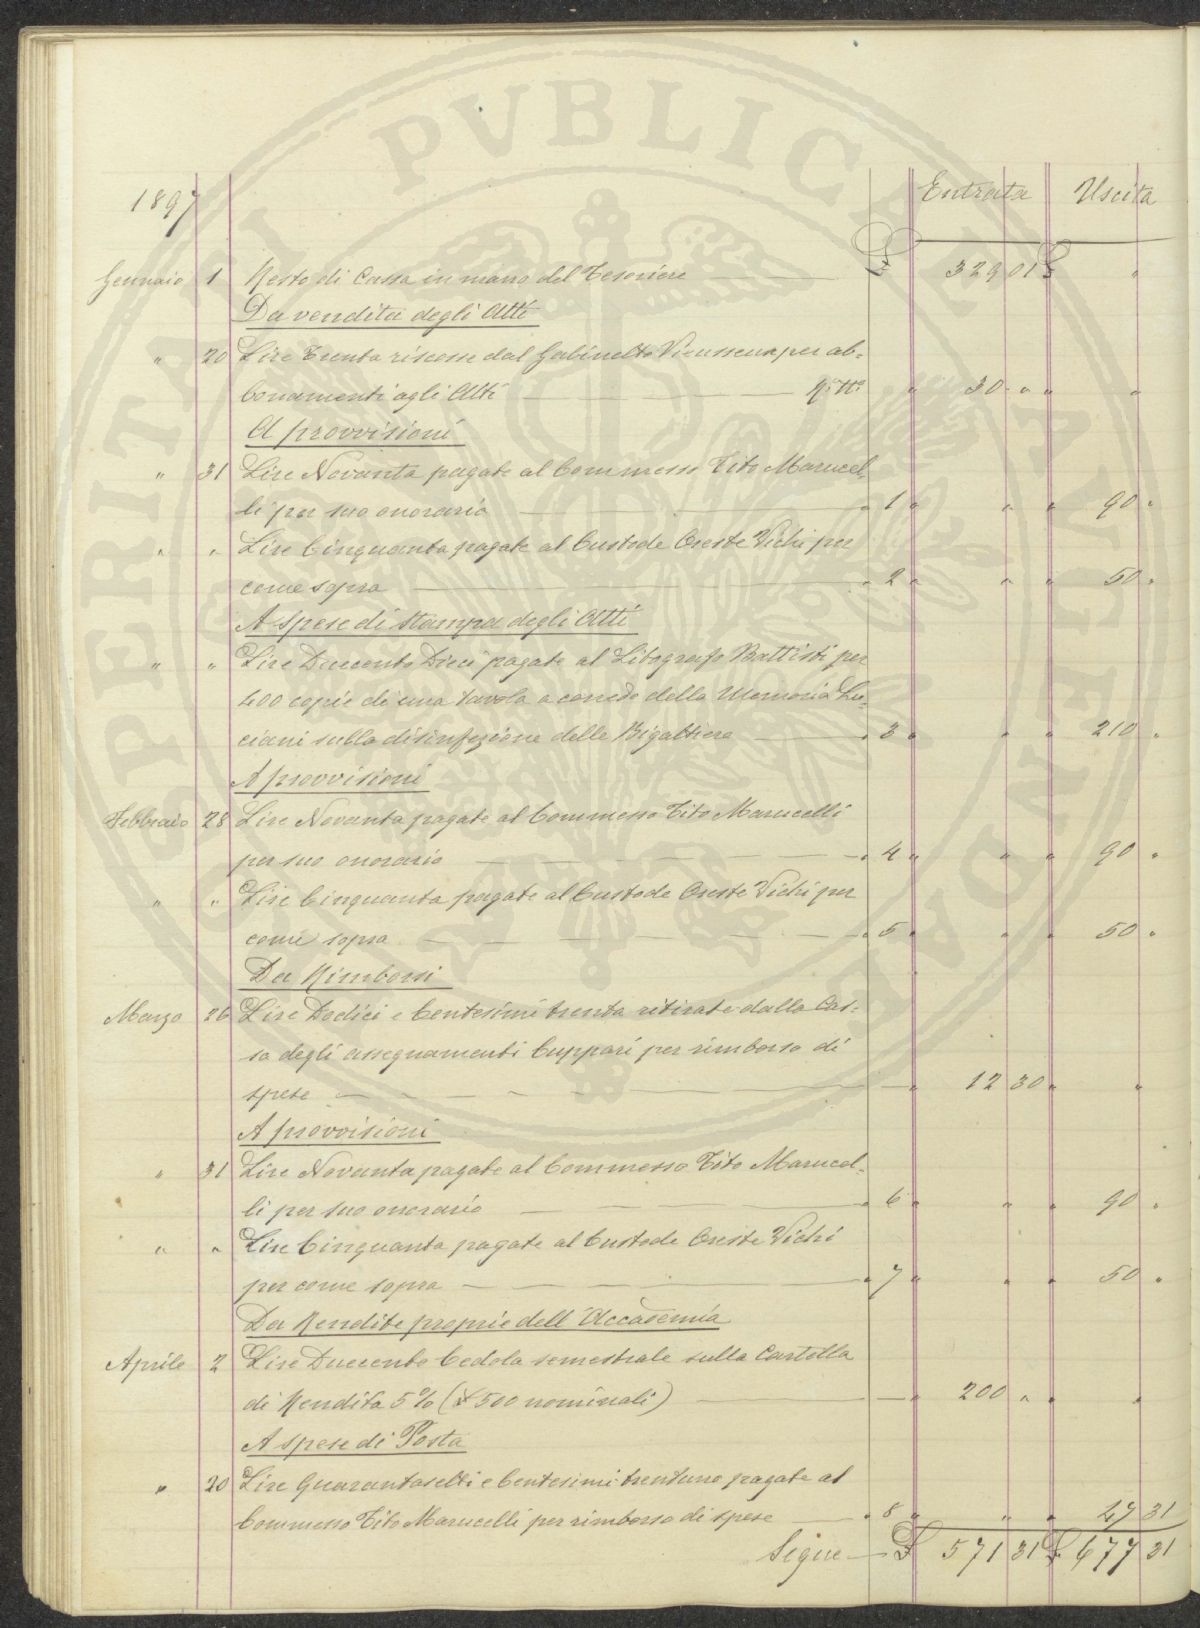 PROSPERITATI PVBLICAE AVGENDAE
1897 Entrata Uscita
Gennaio 1 Resto di Cassa in mano del Tesoriere — £ 329 01 £ "
Da vendita degli Atti
" 20 Lire Trenta riscosse dal Gabinetto Vieusseux per ab-
bonamenti agli Atti — " 30 " " "
A provvisioni
" 31 Lire Novanta pagate al Commesso Tito Marucel-
li per suo onorario — " 1 " " " 90 "
" " Lire Cinquanta pagate al Custode Oreste Vichi per
come sopra — " 2 " " " 50 "
A spese di stampa degli Atti
" " Lire Duecento Dieci pagate al Litografo Battisti per
400 copie di una tavola a corredo della Memoria Lu-
ciani sulla disinfezione delle Bigattiere — " 3 " " " 210 "
A provvisioni
Febbraio 28 Lire Novanta pagate al Commesso Tito Marucelli
per suo onorario — " 4 " " " 90 "
" " Lire Cinquanta pagate al Custode Oreste Vichi per
come sopra — " 5 " " " 50 "
Da Rimborsi
Marzo 26 Lire Dodici e Centesimi trenta ritirate dalla Cas-
sa degli assegnamenti Cuppari per rimborso di
spese — " 12 30 " "
A provvisioni
" 31 Lire Novanta pagate al Commesso Tito Marucel-
li per suo onorario — " 6 " " " 90 "
" " Lire Cinquanta pagate al Custode Oreste Vichi
per come sopra — " 7 " " " 50 "
Da Rendite proprie dell'Accademia
Aprile 2 Lire Duecento Cedola semestrale sulla Cartella
di Rendita 5% (£ 500 nominali) — " 200 " " "
A spese di Posta
" 20 Lire Quarantasette e Centesimi trentuno pagate al
Commesso Tito Marucelli per rimborso di spese — " 8 " " " 47 31
Segue — £ 571 31 £ 677 31